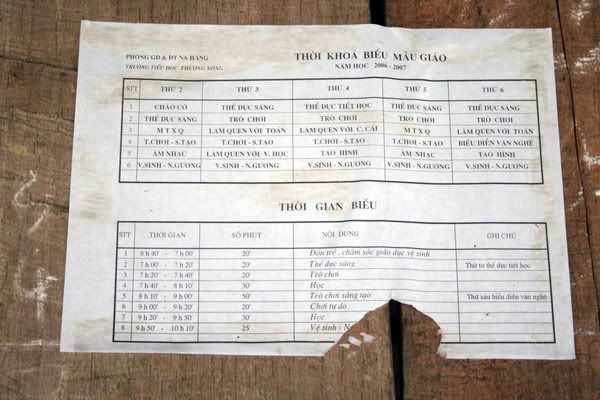 PHÒNG GD & ĐT NA HANG
TRƯỜNG TIỂU HỌC THƯỢNG NÔNG
THỜI KHOÁ BIỂU MẪU GIÁO
NĂM HỌC 2006 - 2007
STT THỨ 2 THỨ 3 THỨ 4 THỨ 5 THỨ 6
1 CHÀO CỜ THỂ DỤC SÁNG THỂ DỤC TIẾT HỌC THỂ DỤC SÁNG THỂ DỤC SÁNG
2 THỂ DỤC SÁNG TRÒ CHƠI TRÒ CHƠI TRÒ CHƠI TRÒ CHƠI
3 M T X Q LÀM QUEN VỚI TOÁN LÀM QUEN VỚI C. CÁI M T X Q LÀM QUEN VỚI TOÁN
4 T.CHƠI - S.TẠO T.CHƠI - S.TẠO T.CHƠI - S.TẠO T.CHƠI - S.TẠO BIỂU DIỄN VĂN NGHỆ
5 ÂM NHẠC LÀM QUEN VỚI V. HỌC TẠO HÌNH ÂM NHẠC TẠO HÌNH
6 V.SINH - N.GƯƠNG V.SINH - N.GƯƠNG V.SINH - N.GƯƠNG V.SINH - N.GƯƠNG V.SINH - N.GƯƠNG
THỜI GIAN BIỂU
STT THỜI GIAN SỐ PHÚT NỘI DUNG GHI CHÚ
1 6 h 40' - 7 h 00' 20' Đón trẻ, chăm sóc giáo dục vệ sinh
2 7 h 00' - 7 h 20' 20' Thể dục sáng Thứ tư thể dục tiết học
3 7 h 20' - 7 h 40' 20' Trò chơi
4 7 h 40' - 8 h 10' 30' Học
5 8 h 10' - 9 h 00' 50' Trò chơi sáng tạo Thứ sáu biểu diễn văn nghệ
6 9 h 00' - 9 h 20' 20' Chơi tự do
7 9 h 20' - 9 h 50' 30' Học
8 9 h 50' - 10 h 10' 25' Vệ sinh - N